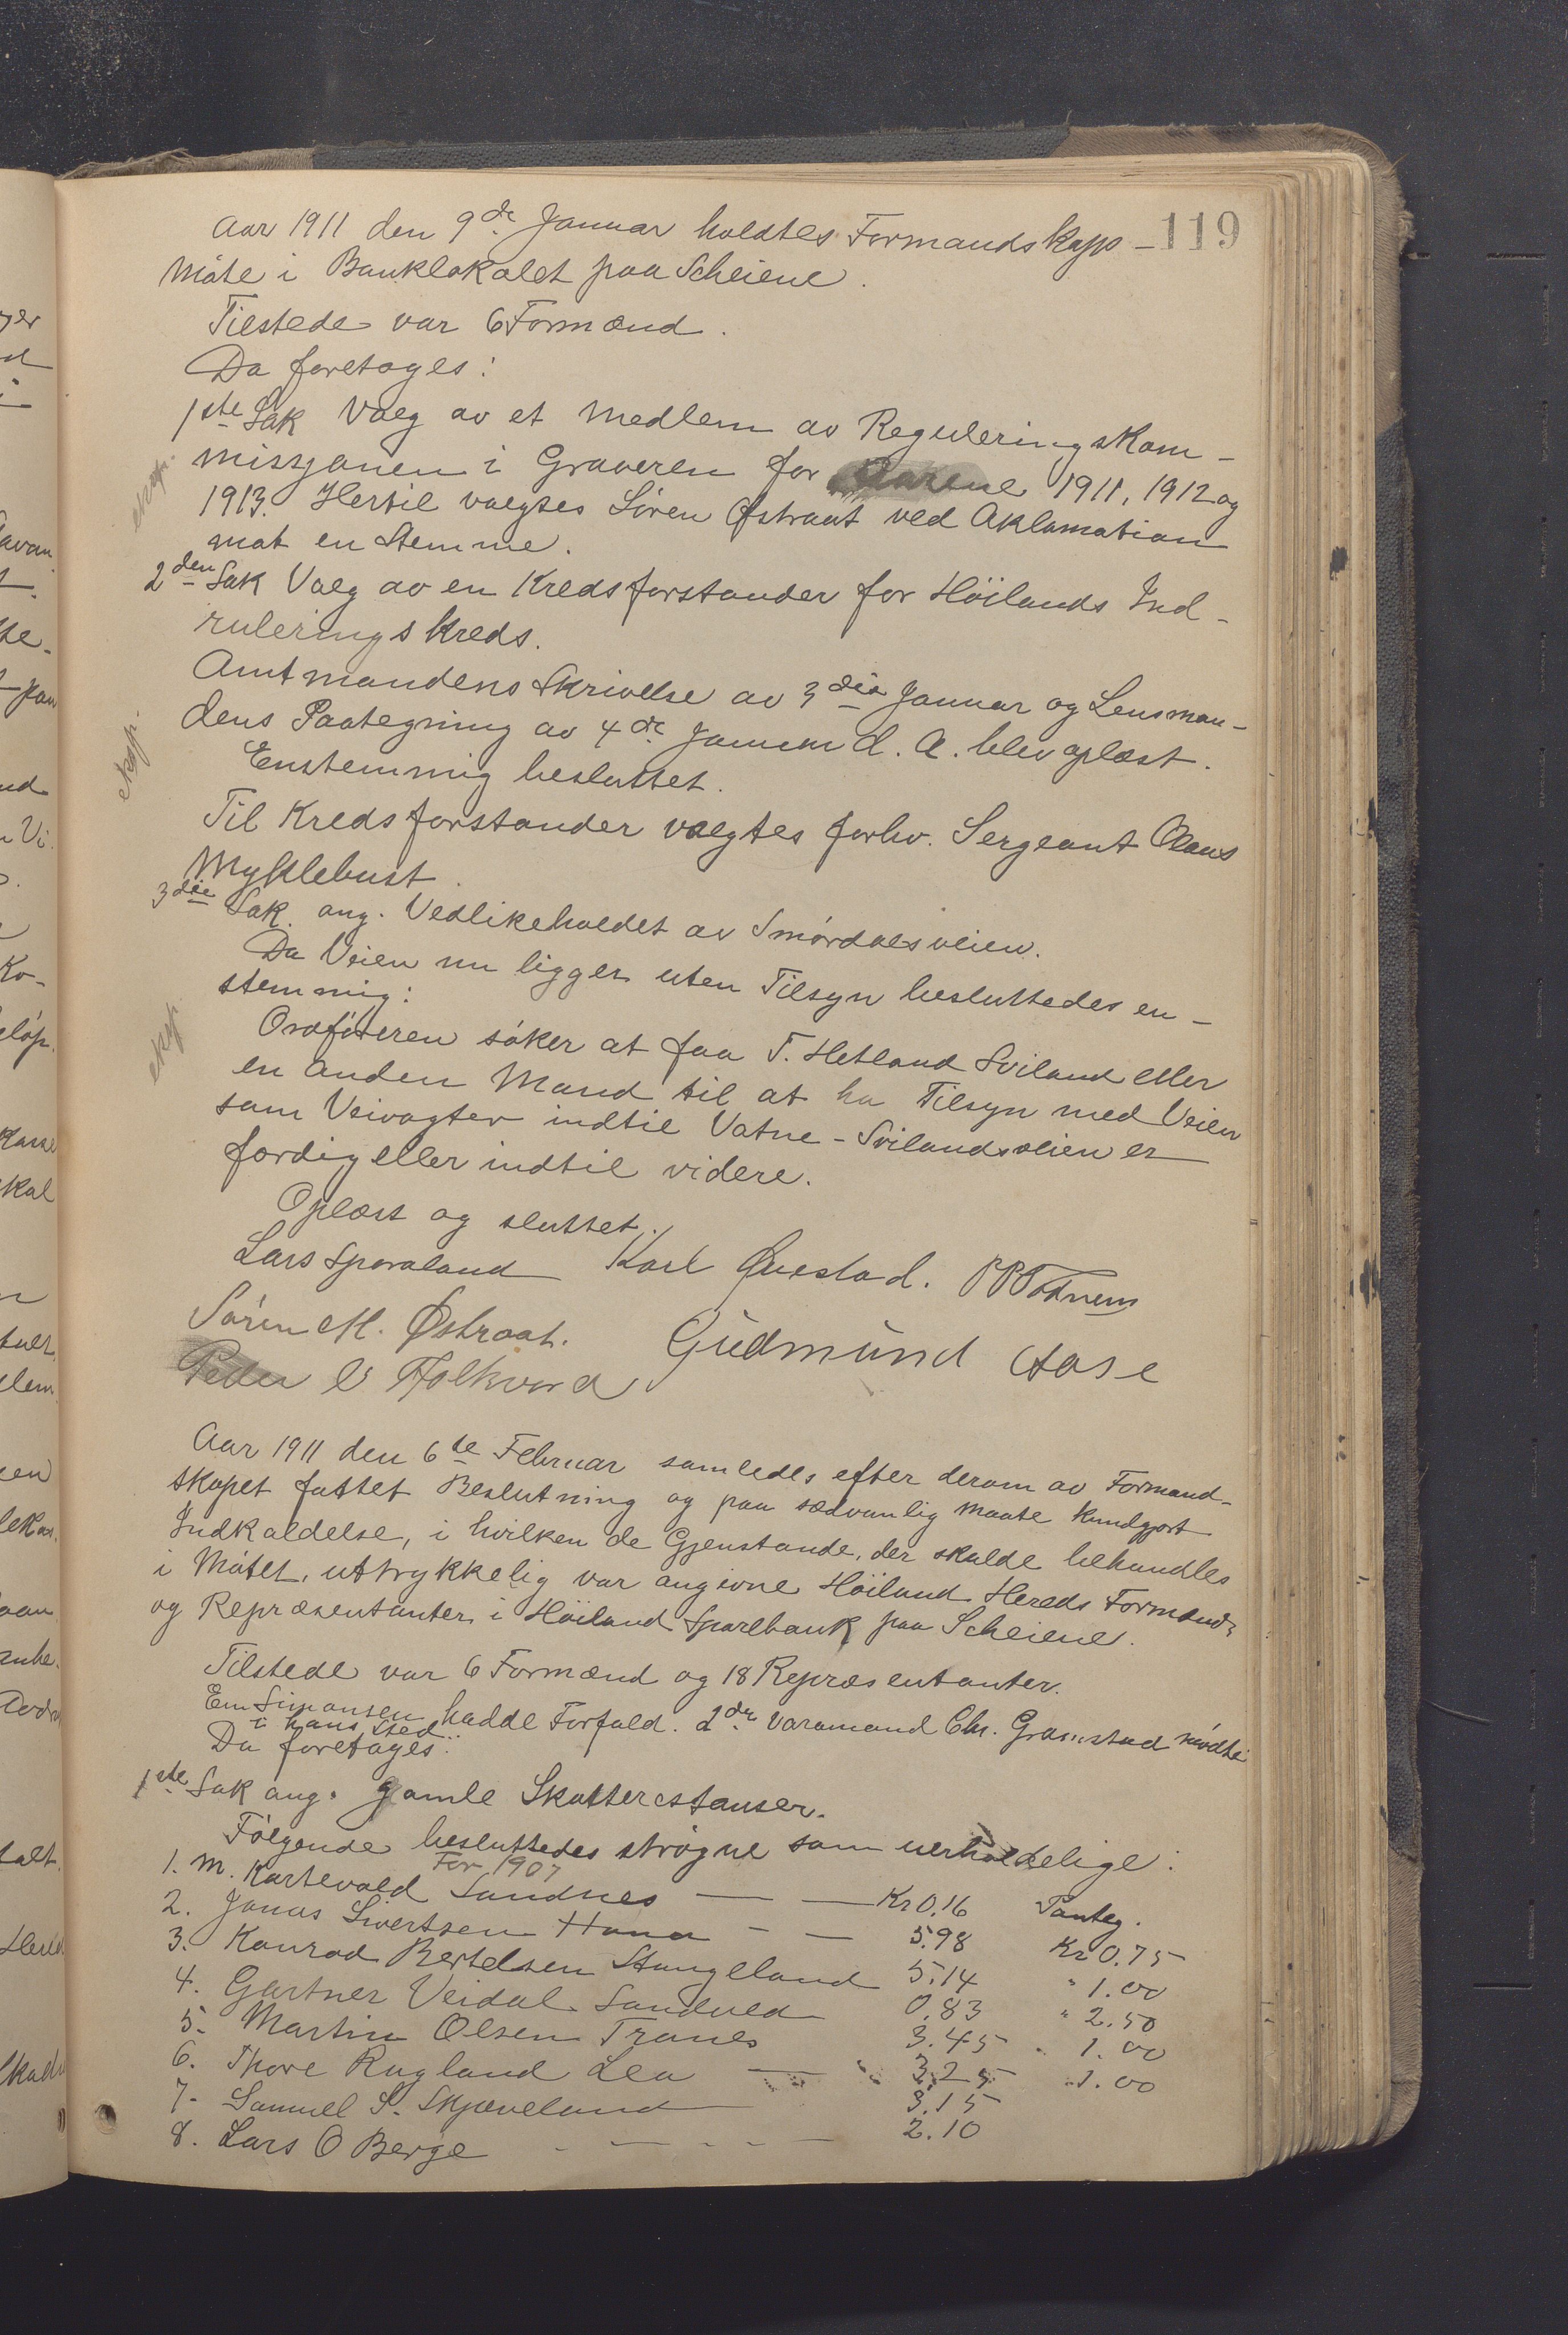 119
Aar 1911 den 9de Januar holdtes Formandskaps-
møte i Banklokalet paa Scheiene.
Tilstede var 6 Formænd.
Da foretoges:
1ste Sak Valg av et Medlem av Reguleringskom-
missjonen i Graveren for Aarene 1911, 1912 og
1913. Hertil valgtes Sören Østraat ved Aklamation
mot en Stemme.
eksp.
2den Sak Valg av en Kredsforstander for Höilands Ind-
ruleringskreds.
Amtmandens Skrivelse av 3die Januar og Lensman-
dens Paategning av 4de Januar d. A. blev oplæst.
eksp.
Enstemmig besluttet.
Til Kredsforstander valgtes forhv. Sergeant Claus
Myklebust.
3die Sak. ang. Vedlikeholdet av Smördalsveien.
Da Veien nu ligger uten Tilsyn besluttedes en-
stemmig:
eksp
Ordföreren söker at faa T. Hetland Sviland eller
en anden Mand til at ha Tilsyn med Veien
som Veivogter indtil Vatne-Svilandsveien er
færdig eller indtil videre.
Oplæst og sluttet.
Lars Sporaland Karl Øvestad. P P Todnem
Sören M. Østraat. Gudmund Aase
Peder E Folkvord
Aar 1911 den 6te Februar samledes efter derom av Formand-
skapet fattet Beslutning og paa sædvanlig Maate kundgjort
Indkaldelse, i hvilken de Gjenstande, der skulde behandles
i Mötet, uttrykkelig var angivne Höiland Hereds Formænd
og Repræsentanter i Höiland Sparebank paa Scheiene.
Tilstede var 6 Formænd og 18 Repræsentanter.
Em Simonsen hadde Forfald. 2den Varamand Chr. Gramstad mödte
i hans Sted.
Da foretoges:
1ste Sak ang. gamle Skatterestanser.
Følgende besluttedes strögne som uerholdelige:
For 1907
1. M. Kartevold Sandnes — — Kr 0.16 Panteg.
2. Jonas Sivertsen Hana — — 5.98 Kr 0.75
3. Konrad Bertelsen Stangeland 5.14 " 1.00
4. Gartner Veidal Sandved 0.83 " 2.50
5. Martin Olsen Tranes 3.45 " 1.00
6. Thore Rugland Lea — " 3.25 " 1.00
7. Samuel S. Skjæveland 3.15
8. Lars O Berge - — - - — 2.10